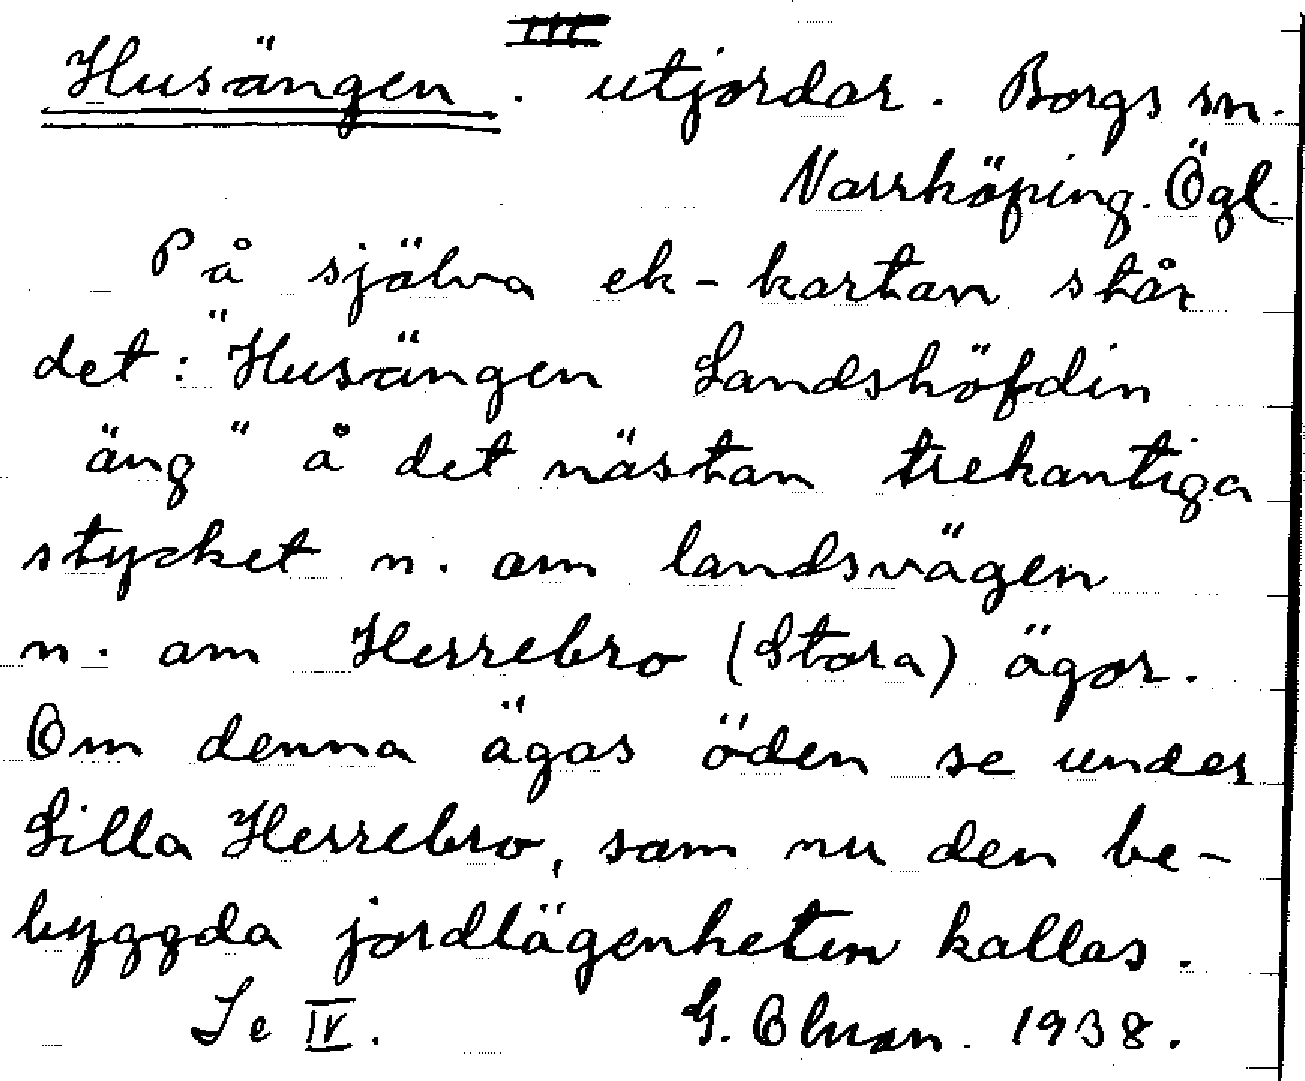 III
Husängen. utjordar. Borgs sn.
Norrköping. Ögl.
På själva ek-kartan står
det: "Husängen Landshöfdin
äng" å det nästan trekantiga
stycket n. om landsvägen
n. om Herrebro (Stora) ägor.
Om denna ägas öden se under
Lilla Herrebro, som nu den be-
byggda jordlägenheten kallas.
Se IV. G. 1938.